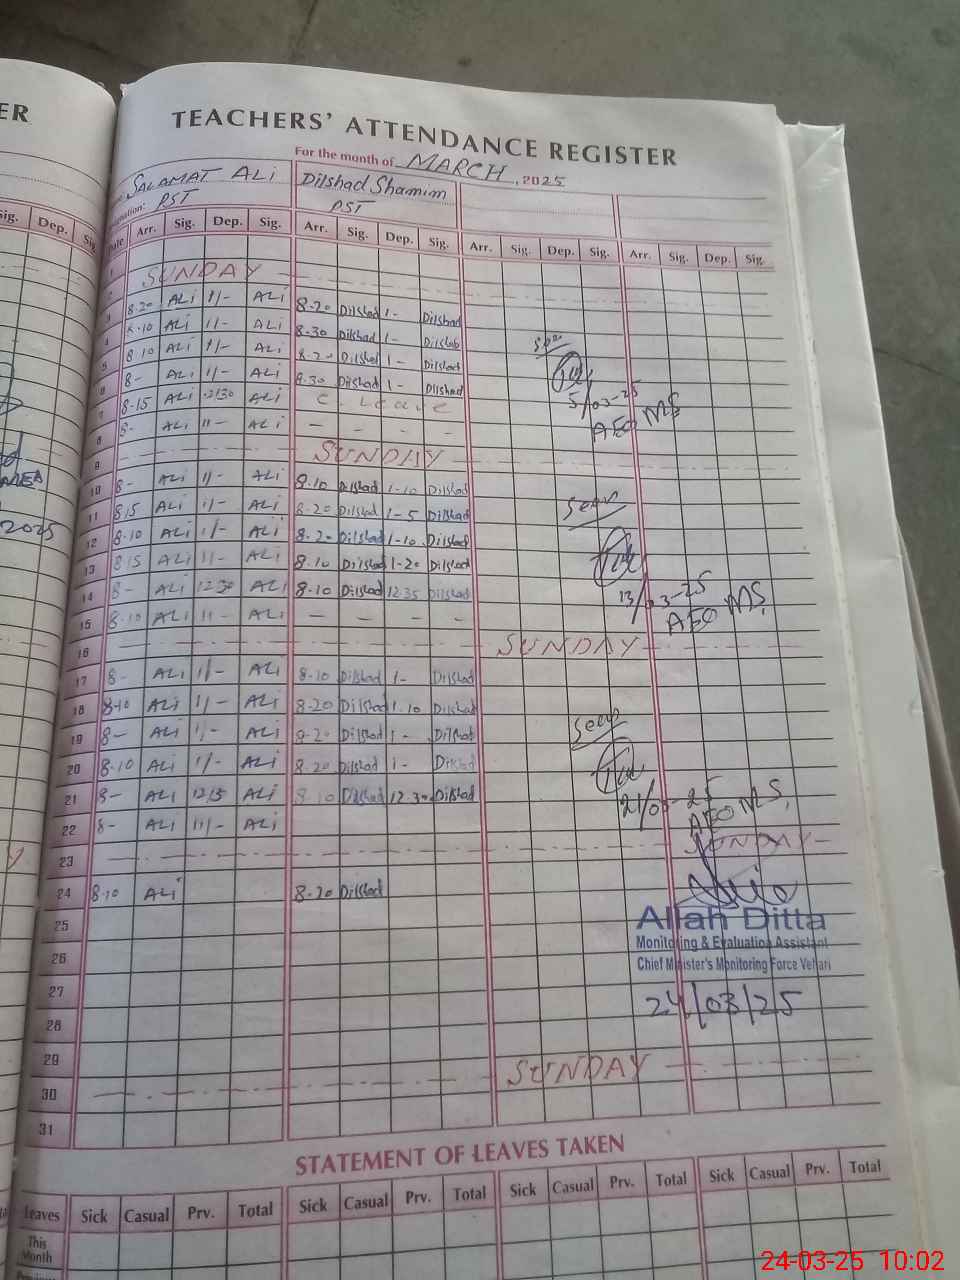 ER
TEACHERS' ATTENDANCE REGISTER
For the month of MARCH, 2025
SALAMAT ALI Dilshad Shamim
PST PST
Sig. Dep. Sig
Date Arr. Sig. Dep. Sig. Arr. Sig. Dep. Sig. Arr. Sig. Dep. Sig. Arr. Sig. Dep. Sig.
1
2 SUNDAY
3 8-20 ALi 1/- ALi 8-20 Dilshad 1- Dilshad
4 8-10 ALi 1/- ALi 8-30 Dilshad 1- Dilshad
5 8 10 ALi 1/- ALi 8-20 Dilshad 1- Dilshad
6 8- ALi 1/- ALi 8.30 Dilshad 1- Dilshad
7 8-15 ALi 12/30 ALi C. Leave
8 8- ALi 11- ALi - - - -
Seen
5/03-25
AEO MS
9 SUNDAY
10 8- ALi 1/- ALi 8.10 Dilshad 1-10 Dilshad
11 8 15 ALi 1/- ALi 8-20 Dilshad 1-5 Dilshad
12 8-10 ALi 1/- ALi 8-20 Dilshad 1-10 Dilshad
13 8 15 ALi 11- ALi 8-10 Dilshad 1-20 Dilshad
14 8- ALi 12 30 ALi 8-10 Dilshad 12.35 Dilshad
15 8-10 ALi 11- ALi - - - -
Seen
13/03-25
AEO MS,
16 SUNDAY
17 8- ALi 1/- ALi 8-10 Dilshad 1- Dilshad
18 8-10 ALi 1/- ALi 8-20 Dilshad 1.10 Dilshad
19 8- ALi 1/- ALi 8-20 Dilshad 1- Dilshad
20 8-10 ALi 1/- ALi 8.20 Dilshad 1- Dilshad
21 8- ALi 12 15 ALi 8-10 Dilshad 12.30 Dilshad
22 8- ALi 11/- ALi
Seen
21/03-25
AEO MS,
23 SUNDAY
24 8-10 ALi 8-20 Dilshad
25
26
27
28
29
30 SUNDAY
31
Allah Ditta
Monitoring & Evaluation Assistant
Chief Minister's Monitoring Force Vehari
24/03/25
2025
STATEMENT OF LEAVES TAKEN
Leaves Sick Casual Prv. Total Sick Casual Prv. Total Sick Casual Prv. Total Sick Casual Prv. Total
This
Month
24-03-25 10:02